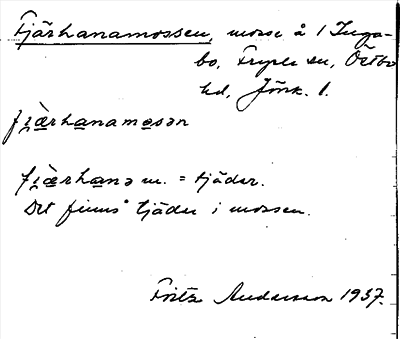 Fjärhanamossen, mosse å 1 Inga-
bo, Fryele sn, Östbo
hd, Jönk. l.
fjæ̀rhanamosən
fjæ̀rhanə m. = tjäder.
Det finns tjäder i mossen.
Fritz Andersson 1937.